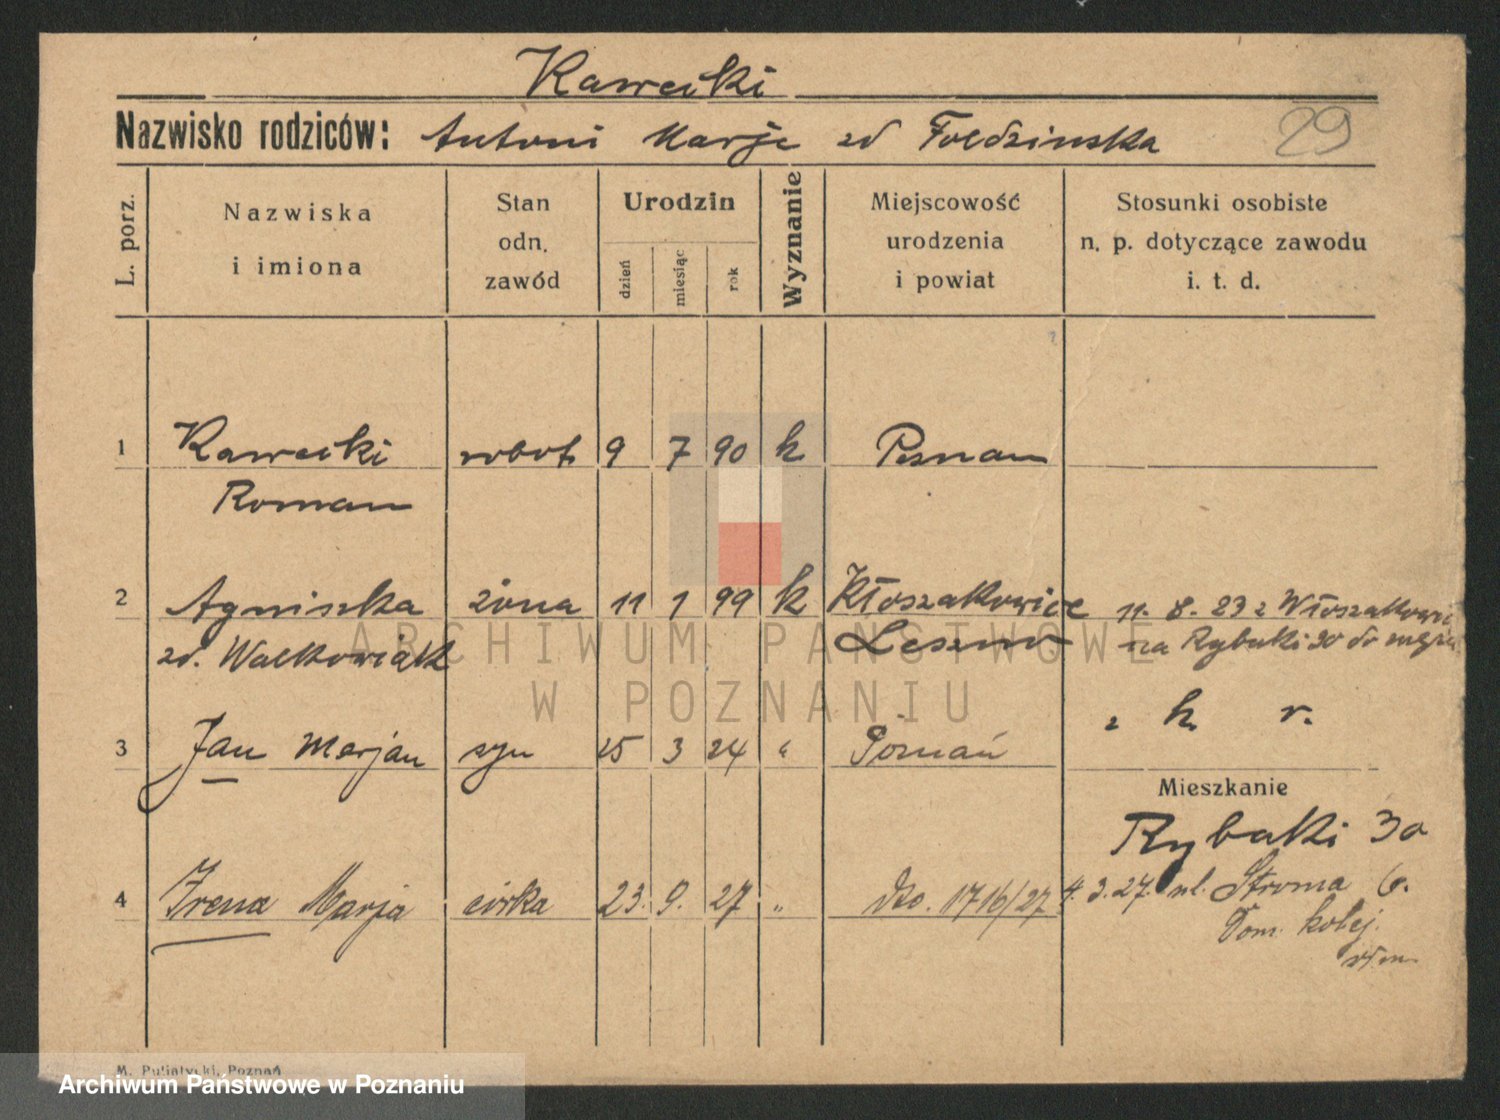 Kawecki
Nazwisko rodziców: Antoni Marja zd Foldzinska
29
L. porz.
Nazwiska i imiona
Stan odn. zawód
Urodzin
dzień
miesiąc
rok
Wyznanie
Miejscowość urodzenia i powiat
Stosunki osobiste n. p. dotyczące zawodu i. t. d.
1 Kawecki robot. 9 7 90 k Poznan
Roman
2 Agniszka żona 11 1 99 k Kłoszakowice 11. 8. 23 z Włoszakowic
zd. Walkowiak Leszno na Rybaki 30 do męża
z k r.
3 Jan Marjan syn 25 3 24 " Poznań
Mieszkanie
Rybaki 30
4 Irena Marja córka 23. 9. 27 " 1716/27 4. 3. 27. ul. Stroma 6.
Dom. kolej.
M. Putiatycki, Poznań
ARCHIWUM PAŃSTWOWE
W POZNANIU
Archiwum Państwowe w Poznaniu